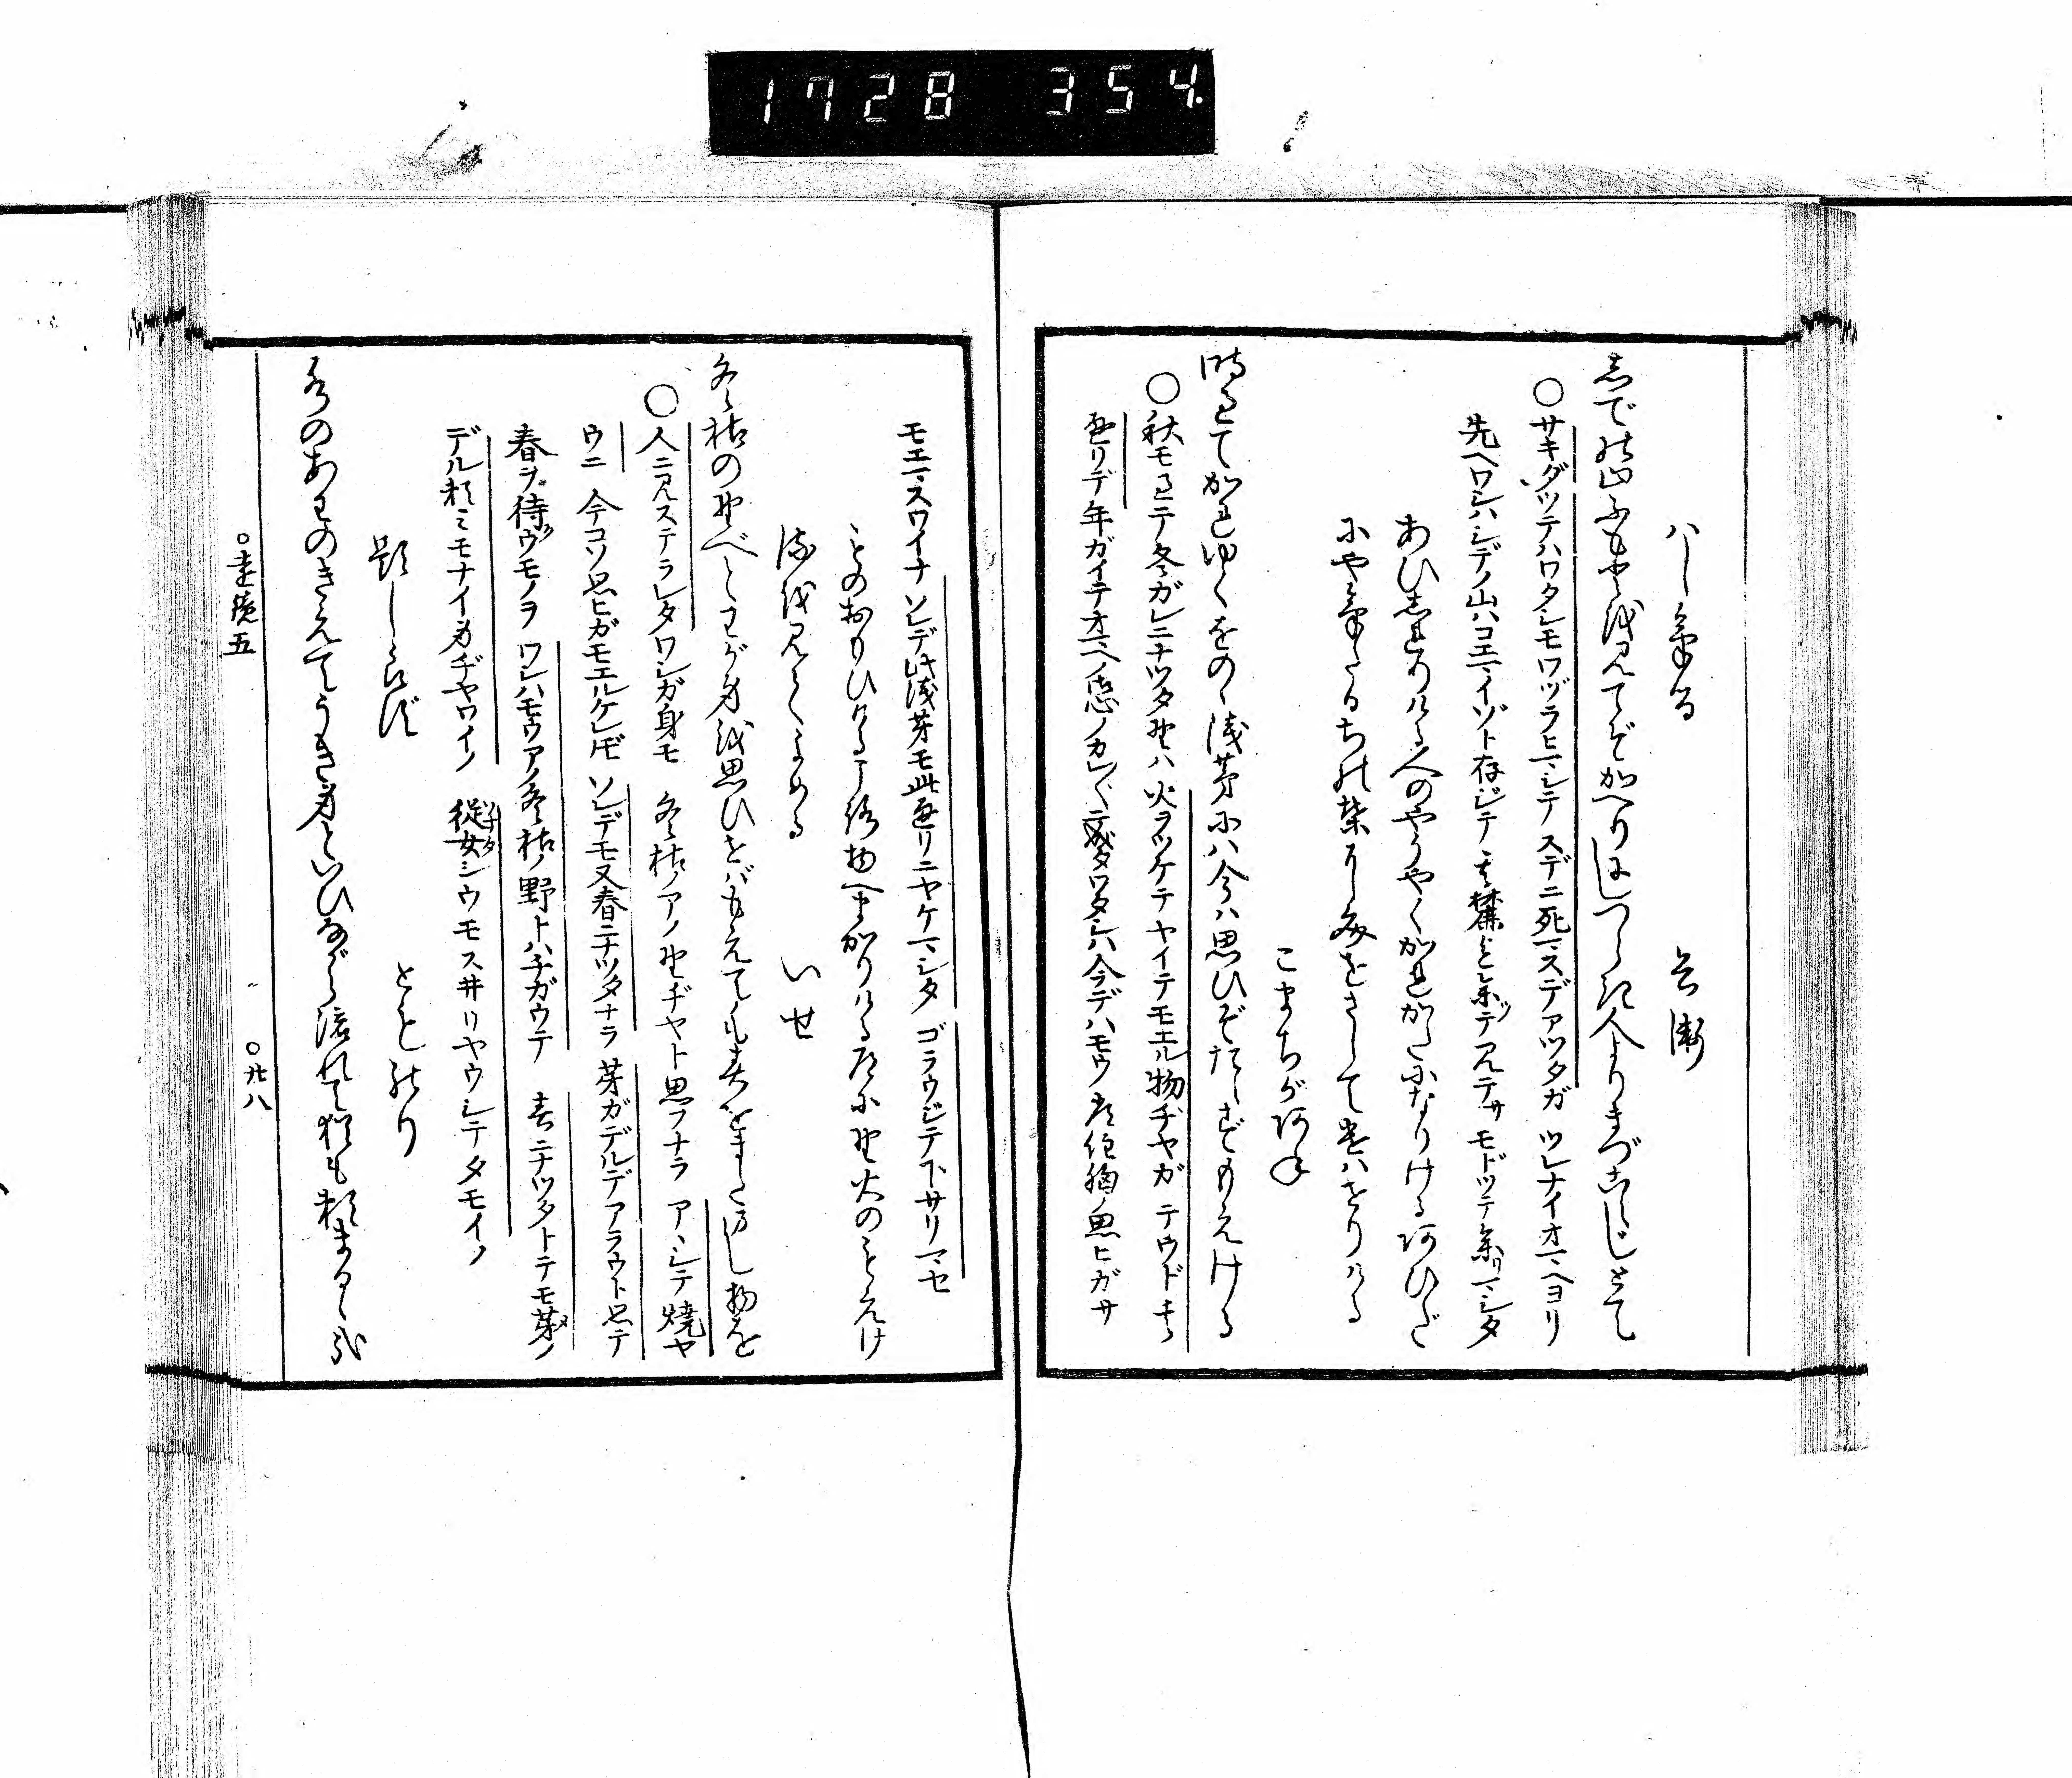 1728 354.
ハしける 兵衛
志での山ふもとを見てぞかへりにしつらき人よりまづこえじとて
○サキダツテハワタシモワヅラヒマシテ スデニ死マスデアツタガ ツレナイオマヘヨリ
先ヘワシハシデノ山ハコエマイゾト存ジテ 麓
あひしれりける人のやうやくかれがたになりけるあひだ
にやけたるちの葉にふみをさしてつかはせりける
こまちがあね
時過てかれゆくをのゝ浅茅にハ今ハ思ひぞたえずもえける
○秋モ過テ冬ガレニナツタ野ハ 火ヲツケテヤイテモエル物ヂヤガ テウドキヨ
過リデ年ガイテオマヘノ カレ〴〵ニ成タワタシハ今デハモウ 胸ノ思ヒガサ
モエマスワイナ ソレデ此浅茅モ此通リニヤケマシタ ゴラウジテ下サリマセ
ものおもひけるころ物へまかりける道に野火のもえけ
るを見てよめる いせ
冬枯の野べとわが身を思ひせばもえても春をまたましものを
○人ニ見ステラレタワシガ身モ 冬枯ノアノ野ヂヤト思フナラ アヽシテ焼ヤ
ウニ 今コソ思ヒガモエルケレドモ ソレデモ又春ニナツタナラ 芽ガデルデアラウト思テ
春ヲ待ウモノヲ ワシハモウアノ冬枯ノ野トハチガウテ 春ニナツタトテモ芽ノ
デル頼ミモナイ身ヂヤワイノ 従女シウモスヰリヤウシテタモイノ
題しらず とものり
水のあわのきえてうき身といひながら流れて猶も頼まるゝ哉
○遠鏡五 ○廿八